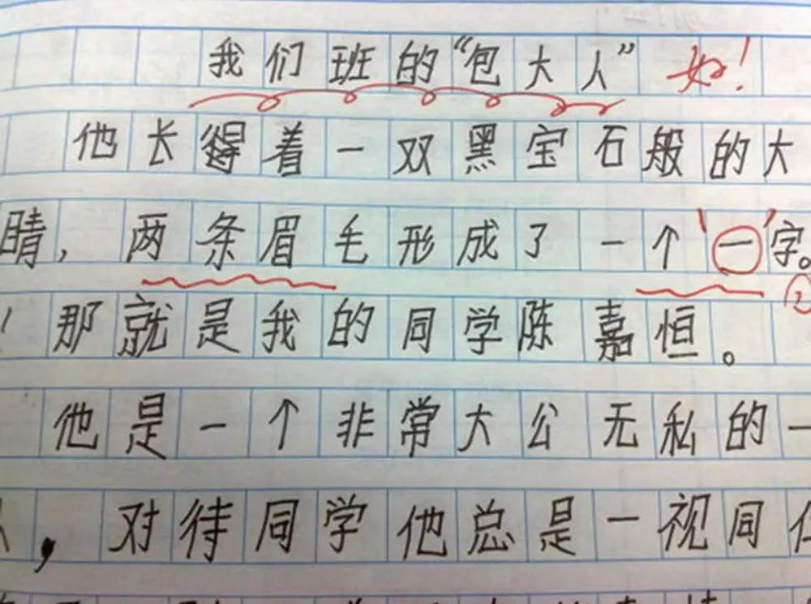 我们班的“包大人” 好！
他长得着一双黑宝石般的大
睛，两条眉毛形成了一个‘一’字。
那就是我的同学陈嘉恒。
他是一个非常大公无私的一
，对待同学他总是一视同仁